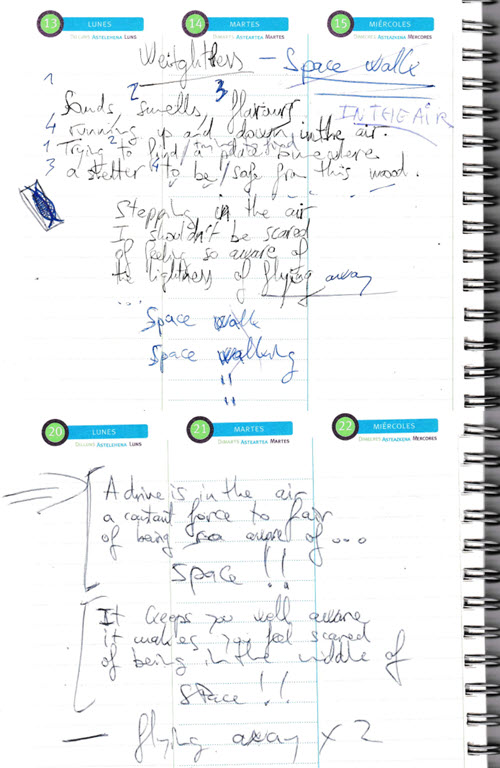 13 LUNES 14 MARTES 15 MIÉRCOLES
DILLUNS ASTELEHENA LUNS DIMARTS ASTEARTEA MARTES DIMECRES ASTEAZKENA MERCORES
Weightless – Space walk
1 2 3
Sands smells, flavours
IN THE AIR
4 running up and down in the air.
1 Trying to find / a place somewhere
3 a shelter to be / safe from this mood.
Stepping in the air
I shouldn't be scared
of being so aware of
the lightness of flying away
...
Space walk
Space walking
"
"
20 LUNES 21 MARTES 22 MIÉRCOLES
DILLUNS ASTELEHENA LUNS DIMARTS ASTEARTEA MARTES DIMECRES ASTEAZKENA MERCORES
A drive is in the air
a constant force to fair
of being so aware of ...
Space !!
It keeps you well aware
it makes you feel scared
of being in the middle of
SPace !!
— flying away x 2